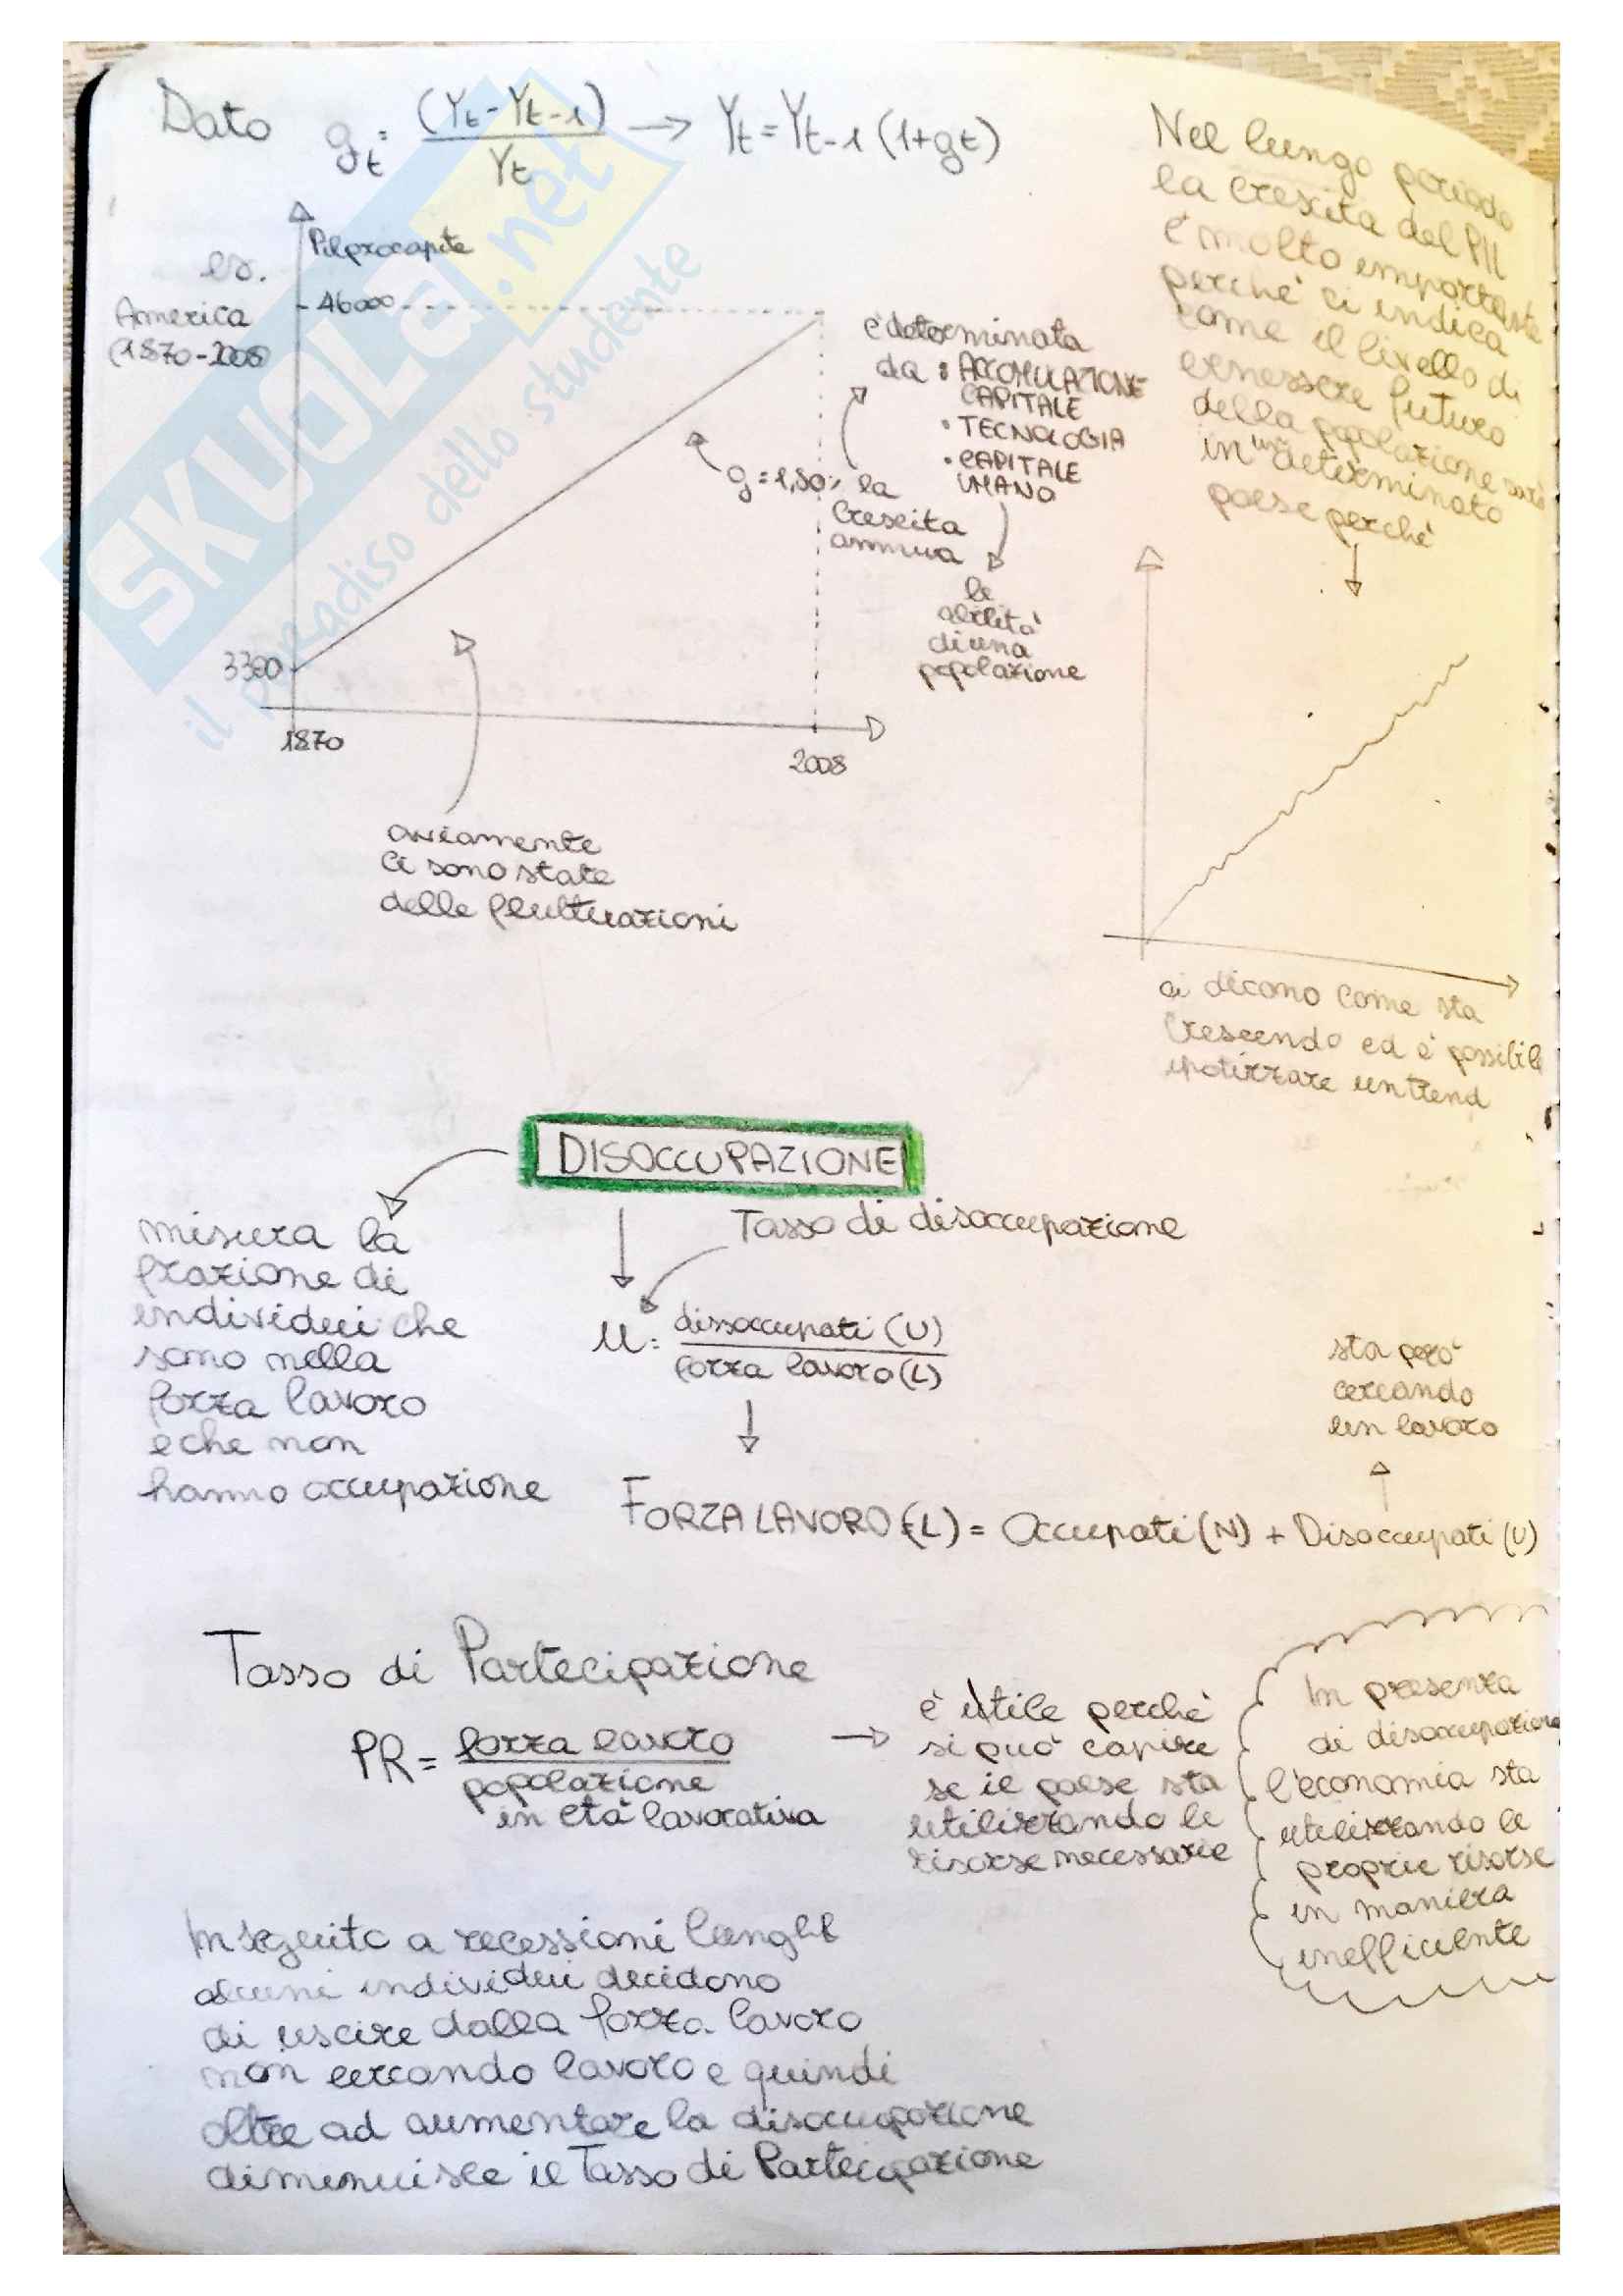 Dato gt = (Yt-Yt-1) / Yt → Yt = Yt-1 (1+gt)
Pil procapite
es.
America
(1870-2008)
46000
3380
1870
2008
g=1,80% la
crescita
annua
è determinata
da: • ACCOMULAZIONE
CAPITALE
• TECNOLOGIA
• CAPITALE
UMANO
le
abilità
di una
popolazione
ovviamente
ci sono state
delle fluttuazioni
Nel lungo periodo
la crescita del PIL
è molto importante
perchè ci indica
come il livello di
benessere futuro
della popolazione sarà
in un determinato
paese perchè
ci dicono come sta
crescendo ed è possibile
ipotizzare un trend
DISOCCUPAZIONE
misura la
frazione di
individui che
sono nella
forza lavoro
e che non
hanno occupazione
Tasso di disoccupazione
u = dissoccupati (U)
forza lavoro (L)
sta però
cercando
un lavoro
FORZA LAVORO (L) = Occupati (N) + Disoccupati (U)
Tasso di Partecipazione
PR = forza lavoro
popolazione
in età lavorativa
è utile perchè
si può capire
se il paese sta
utilizzando le
risorse necessarie
In presenza
di disoccupazione
l'economia sta
utilizzando le
proprie risorse
in maniera
inefficiente
In seguito a recessioni lunghe
alcuni individui decidono
di uscire dalla forza lavoro
non cercando lavoro e quindi
oltre ad aumentare la disoccupazione
diminuisce il Tasso di Partecipazione
SKUOLA.net
il paradiso dello studente